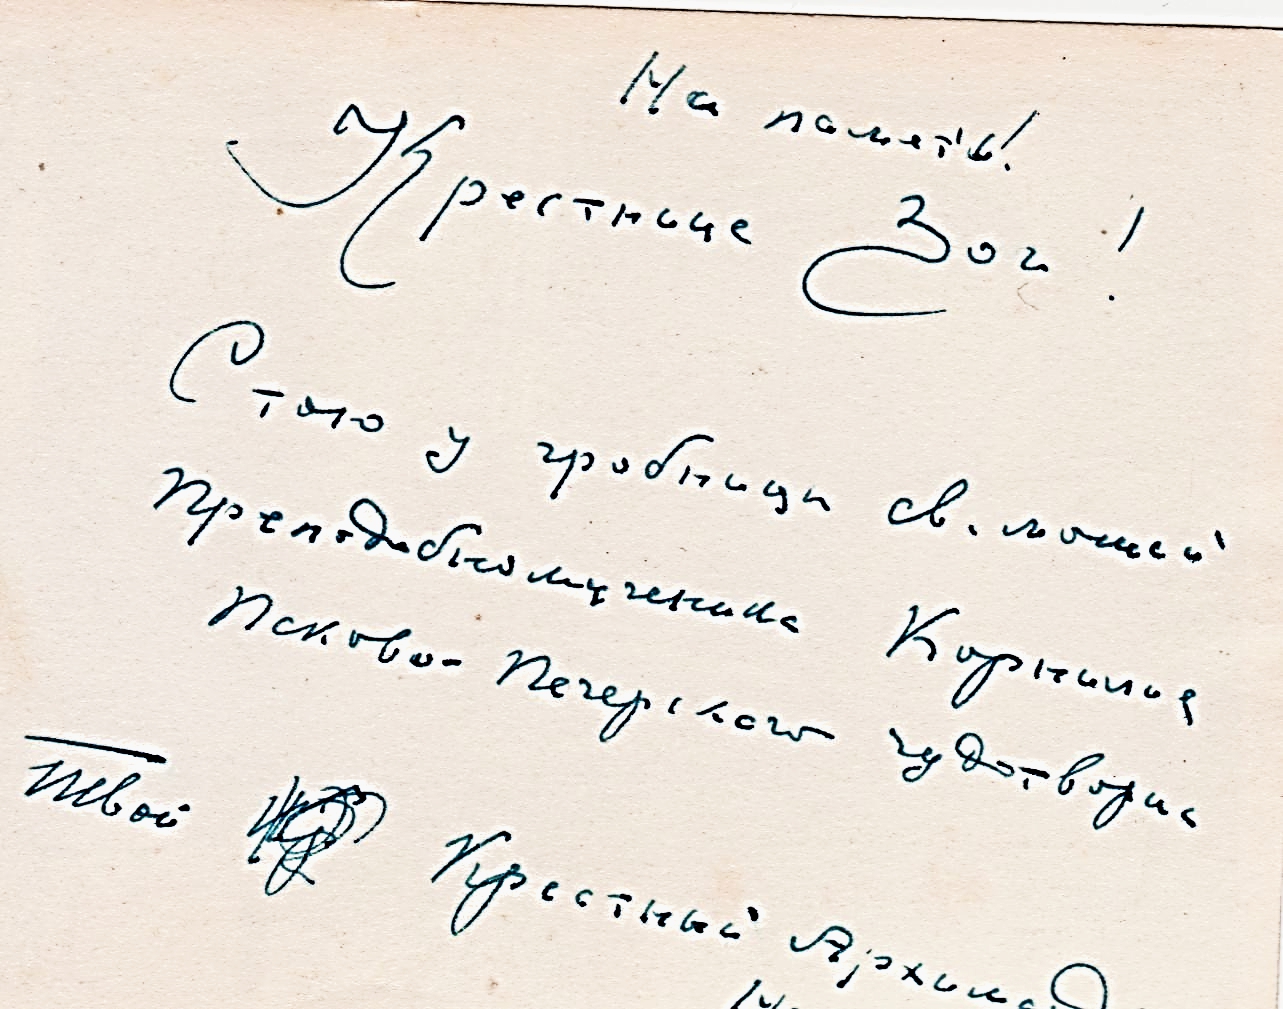 На память!
Крестнице Зои!
Стою у гробницы св. мощей
Преподобномученика Корнилия
Псково-Печерского чудотворца
Твой Крестный Архиманд